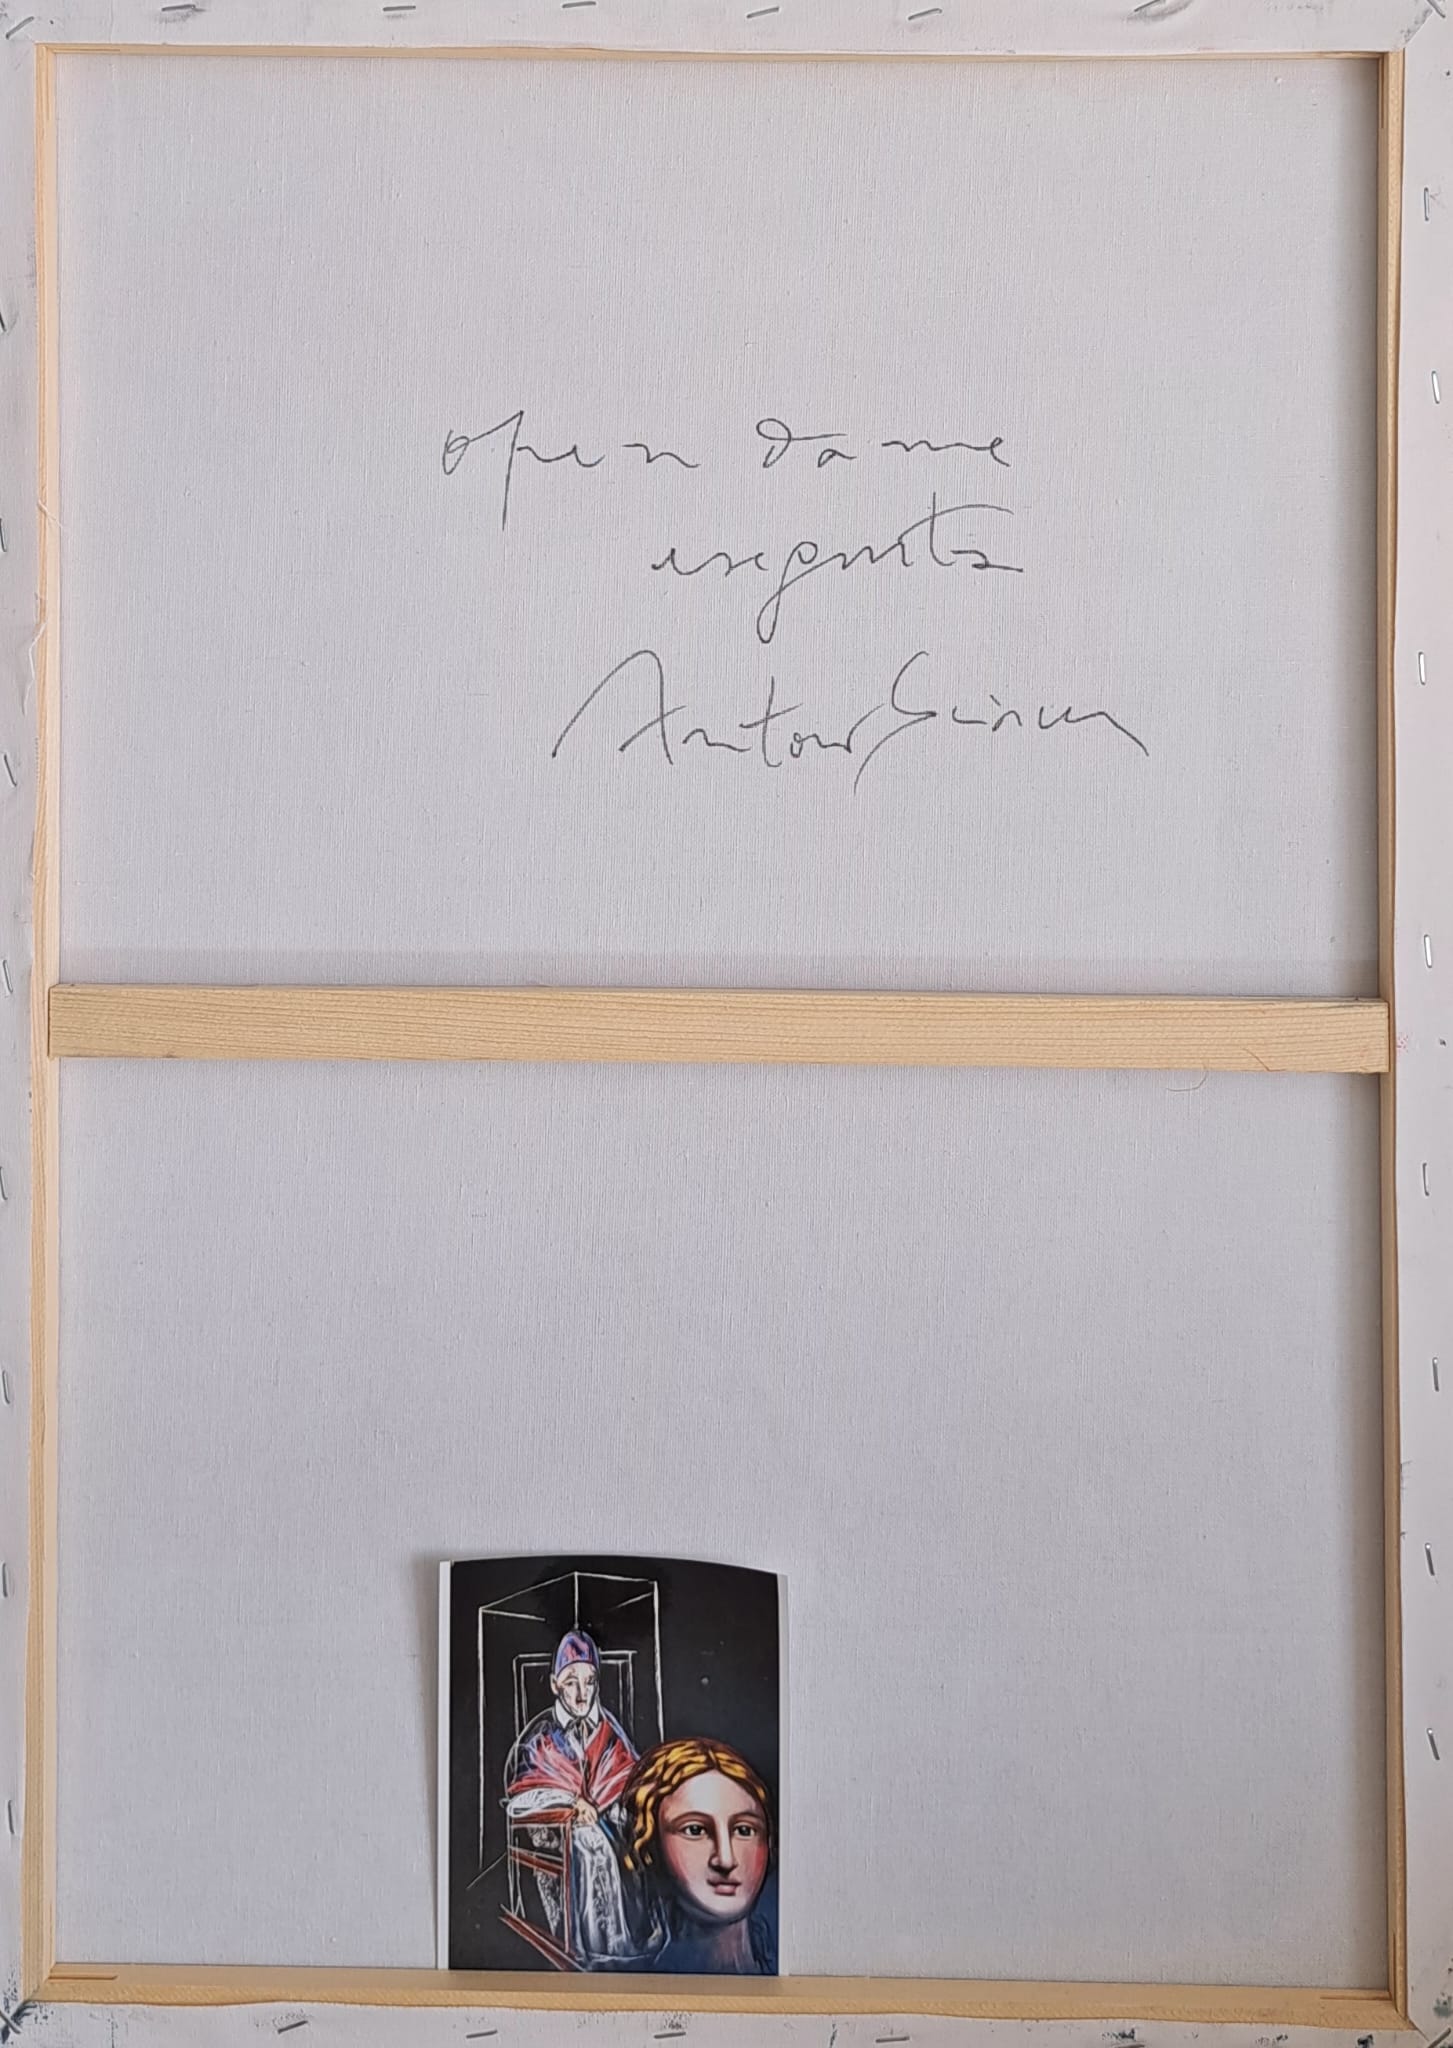 opera da me
eseguita
Antonio Sciacca